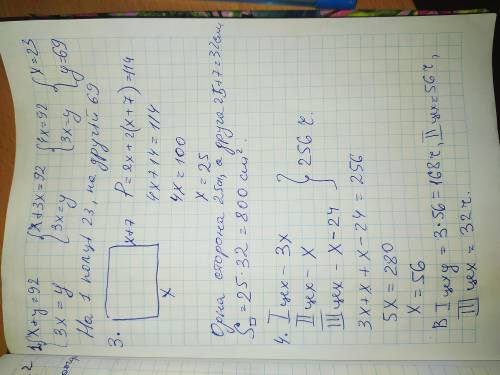 2
1) { x+y=92 { x+3x=92 { 4x=92 { x=23
{ 3x=y { 3x=y { 3x=y { y=69
На 1 полці 23, на другій 69
3. x+7 P=2x+2(x+7)=114
x 4x+14=114
4x=100
x=25
Одна сторона 25см, а друга 25+7=32см
S□=25·32=800 см²
4. I цех – 3x
II цех – x } 256 ч.
III цех – x-24
3x+x+x-24=256
5x=280
x=56
В I цеху = 3·56=168ч, II цех=56ч,
III цех = 32ч.